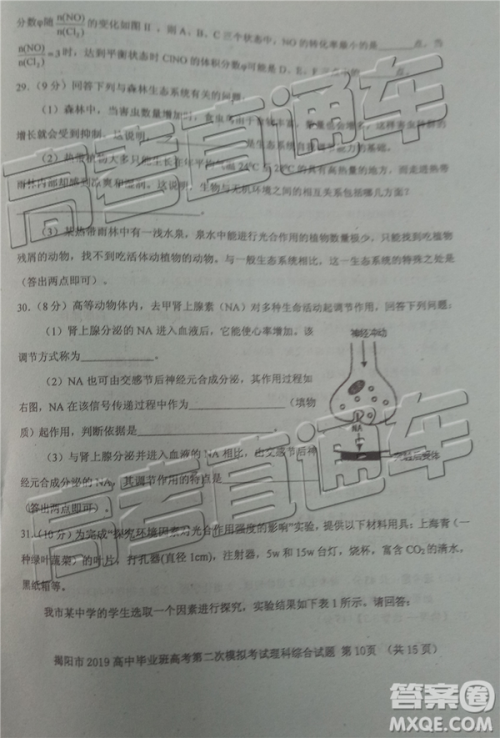 分数φ随n(NO)/n(Cl₂)的变化如图Ⅱ，则A、B、C三个状态中，NO的转化率最小的是______点，当
n(NO)/n(Cl₂)=3时，达到平衡状态时ClNO的体积分数φ可能是D、E、F三点中的______点。
29.（9分）回答下列与森林生态系统有关的问题。
（1）森林中，当害虫数量增加时，食虫鸟由于
增长就会受到抑制。这说明，______是生态系统自我调节能力的基础。
（2）热带植物大多只能生长在年平均气温24℃至28℃的具有高热量的地方，而走进热带
雨林内部却感到凉爽和湿润。这说明，生物与无机环境之间的相互关系包括哪几方面？
（3）某热带雨林中有一浅水泉，泉水中能进行光合作用的植物数量极少，只有一些取食植物
残屑的动物，找不到吃活体动植物的动物。与一般生态系统相比，此生态系统的特点是
（答出两点即可）。
30.（8分）高等动物体内，去甲肾上腺素（NA）对多种生命活动起调节作用，回答下列问题。
（1）肾上腺分泌的NA进入血液后，它能使心率增加。该
调节方式称为______。
（2）NA也可由交感节后神经元合成分泌，其作用过程如
右图，NA在该信号传递过程中作为______（填物
质）起作用，判断依据是______
（3）与肾上腺分泌并进入血液的NA相比，由交感节后神
经元合成分泌的NA，其调节作用的特点是______
（答出两点即可）。
神经冲动
NA
突触后受体
31.（10分）为完成“探究环境因素对光合作用强度的影响”实验，提供以下材料用具：上海青（一
种绿叶蔬菜）的叶片，打孔器(直径1cm)，注射器，5w和15w台灯，烧杯，富含CO₂的清水，
黑纸箱等。
我市某中学的学生选取一个因素进行探究，实验结果如下表1所示。请回答：
揭阳市2019高中毕业班高考第二次模拟考试理科综合试题 第10页 （共15页）
高考直通车
高考直通车
答案圈
MXQE.COM